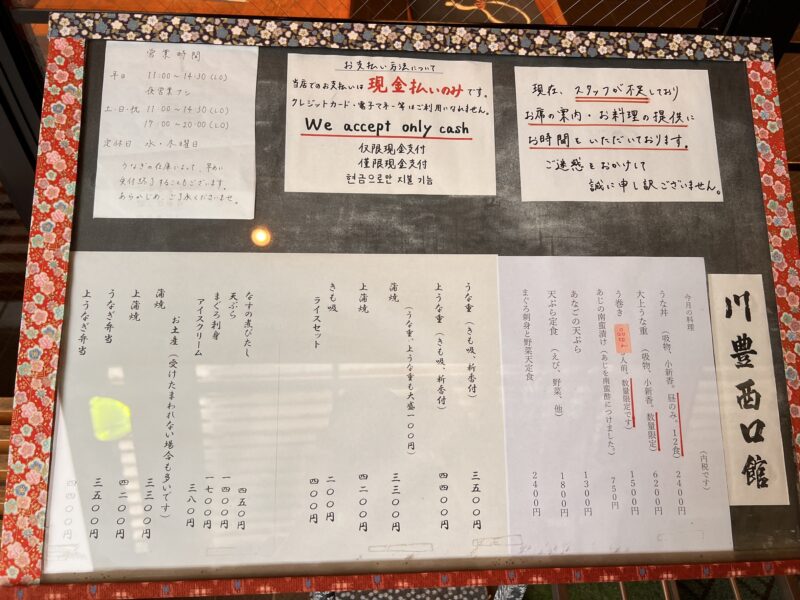 営業時間
平日 11:00～14:30(LO)
夜営業ナシ
土・日・祝 11:00～14:30(LO)
17:00～20:00(LO)
定休日 水・木曜日
うなぎの在庫によって、早めに
受付終了することもございます。
あらかじめ、ご了承くださいませ。
お支払い方法について
当店でのお支払いは現金払いのみです。
クレジットカード・電子マネー等はご利用になれません。
We accept only cash
仅限現金支付
僅限現金支付
현금으로만 지불 가능
現在、スタッフが不足しており
お席の案内・お料理の提供に
お時間をいただいております。
ご迷惑をおかけして
誠に申し訳ございません。
川豊西口館
今月の料理 (内税です)
うな丼 (吸物、小新香。昼のみ。12食) 2400円
大上うな重 (吸物、小新香。数量限定) 6200円
う巻き 人前、数量限定です) 1500円
あじの南蛮漬け (あじを南蛮酢につけました。) 750円
あなごの天ぷら 1300円
天ぷら定食 (えび、野菜、他) 1800円
まぐろ刺身と野菜天定食 2400円
うな重 (きも吸、新香付) 三五〇〇円
上うな重 (きも吸、新香付) 四四〇〇円
(うな重、上うな重も大盛一〇〇円)
蒲焼 三三〇〇円
上蒲焼 四二〇〇円
きも吸 二〇〇円
ライスセット 四〇〇円
なすの煮びたし 四五〇円
天ぷら 一四〇〇円
まぐろ刺身 一七〇〇円
アイスクリーム 三八〇円
お土産 (受けたまわれない場合も多いです)
蒲焼 三三〇〇円
上蒲焼 四二〇〇円
うなぎ弁当 三五〇〇円
上うなぎ弁当 四四〇〇円